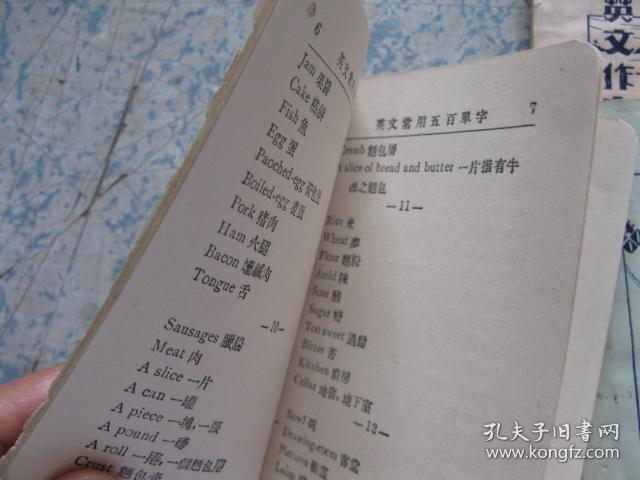 6
英文常
Jam 果醬
Cake 糕餅
Fish 魚
Egg 蛋
Paoched-egg 荷包蛋
Boiled-egg 煮蛋
Pork 猪肉
Ham 火腿
Bacon 燻鹹肉
Tongue 舌
—10—
Sausages 臘腸
Meat 肉
A slice 一片
A can 一罐
A piece 一塊,一張
A pound 一磅
A roll 一捲,一個麵包捲
Crust 麵包壳
英文常用五百單字 7
麵包屑
slice of bread and butter 一片搽有牛
油之麵包
—11—
Rice 米
Wheat 麥
Flour 麵粉
Acrid 辣
Sour 酸
Sugar 糖
Too sweet 過甜
Bitter 苦
Kitchen 廚房
Cellar 地窖,地下室
—12—
Bowl 碗
Drawing-room 客堂
Pictures
英文作
孔夫子旧书网
KONGFZ.COM